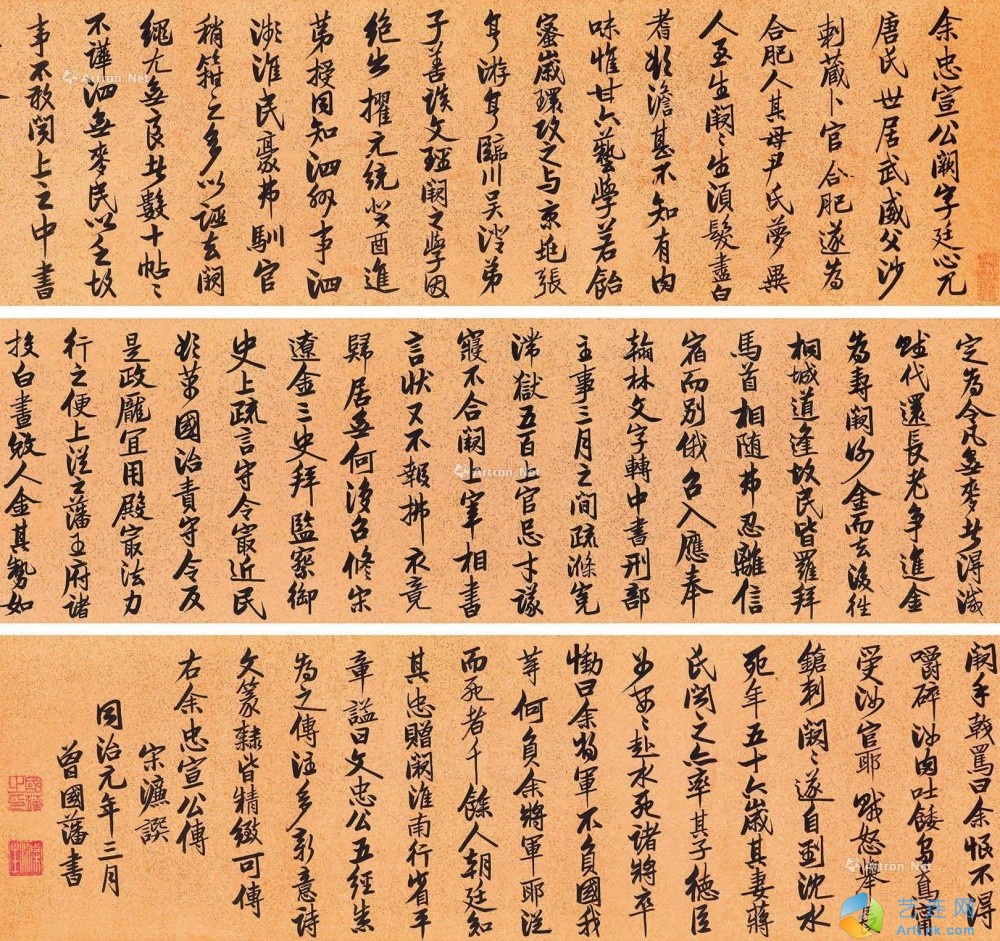 余忠宣公闕字廷心元
唐氏世居武威父沙
剌藏卜官合肥遂為
合肥人其母尹氏夢異
人至生闕闕生須髮盡白
者欲澹甚不知有肉
味惟甘六藝學若飴
蜜嵗環攻之与京地張
亨游亨臨川吴澄弟
子善談文經闕之學因
絶出擢元統癸酉進
苐授同知泗州事泗
瀕淮民豪弗馴官
稍箝之多以誣去闕
繩尤無良者數十帖帖
不譁泗無麥民以乏故
事不敢闻上之中書
定為令凡無麥者得減
賦代還長老争進金
為壽闕却金而去後徃
桐城道逢故民皆羅拜
馬首相随弗忍離信
宿而别俄召入應奉
翰林文字轉中書刑部
主事三月之間疏滌冤
滯獄五百上官忌才議
寢不合闕上宰相書
言狀又不報拂衣竟
歸居無何復召修宋
遼金三史拜監察御
史上疏言守令寂近民
欲萬國治責守令反
是政厖宜用殿最法力
行之便上從之藩王府諸
挍白晝攫人金其勢如
闕手戟罵曰余恨不得
嚼碎汝肉吐餧烏鳶甯
受汝官耶賊怒舉長
鎗刺闕闕遂自刭沈水
死年五十六嵗其妻蔣
氏闻之亦率其子徳臣
女安安赴水死諸將卒
慟曰余將軍不負國我
等何負余將軍耶従
而死者千餘人朝廷知
其忠贈闕淮南行省平
章謚曰文忠公五經悉
為之傳注多新意詩
文篆隸皆精緻可傳
右余忠宣公傳
宋濂譔
同治元年三月
曾國藩書
Artron.Net
艺连网
Artlnk.com